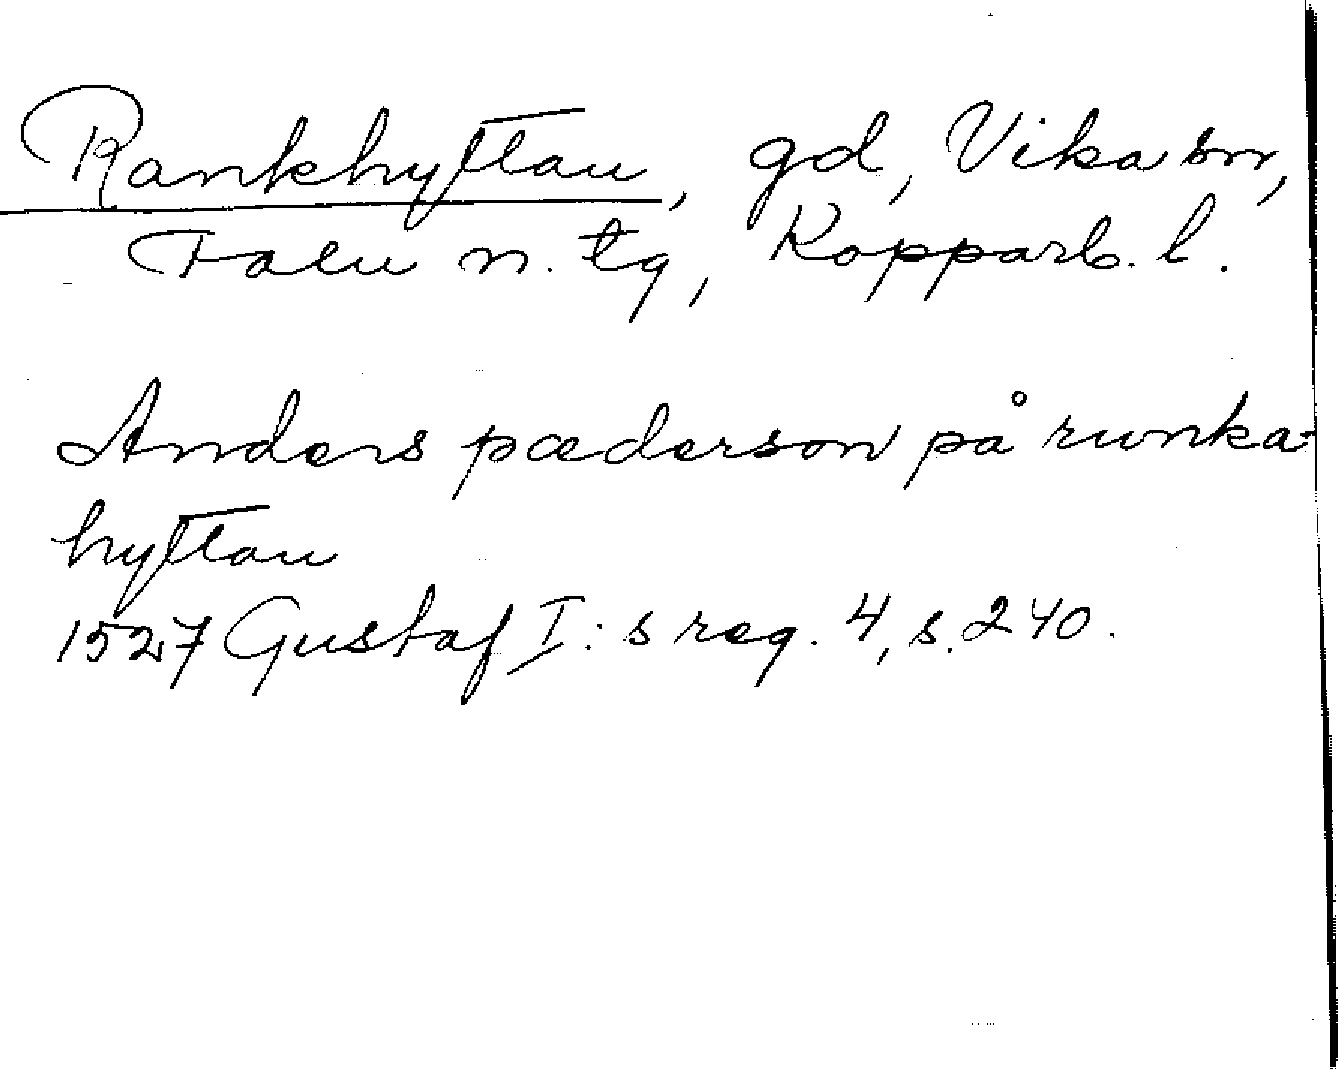 Rankhyttan, gd, Vika sn,
Falu n. tg, Kopparb. l.
Anders pæderson på runka-
hyttan
1527 Gustaf I:s reg. 4, s. 240.